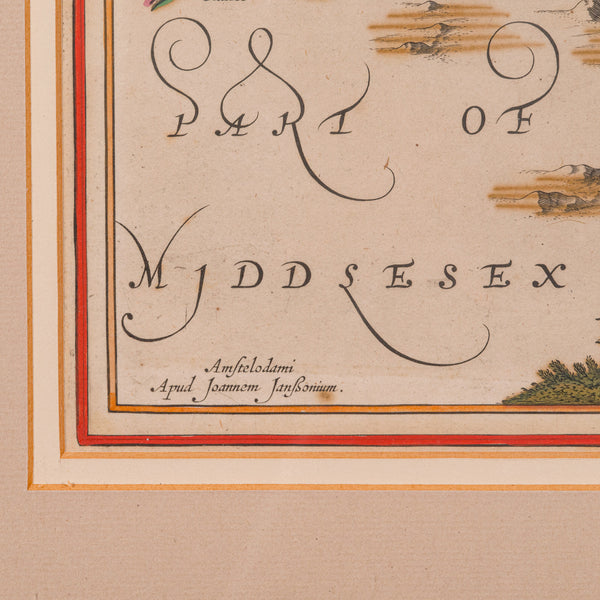 PART OF
MJDDSESEX
Amſtelodami
Apud Joannem Janßonium.